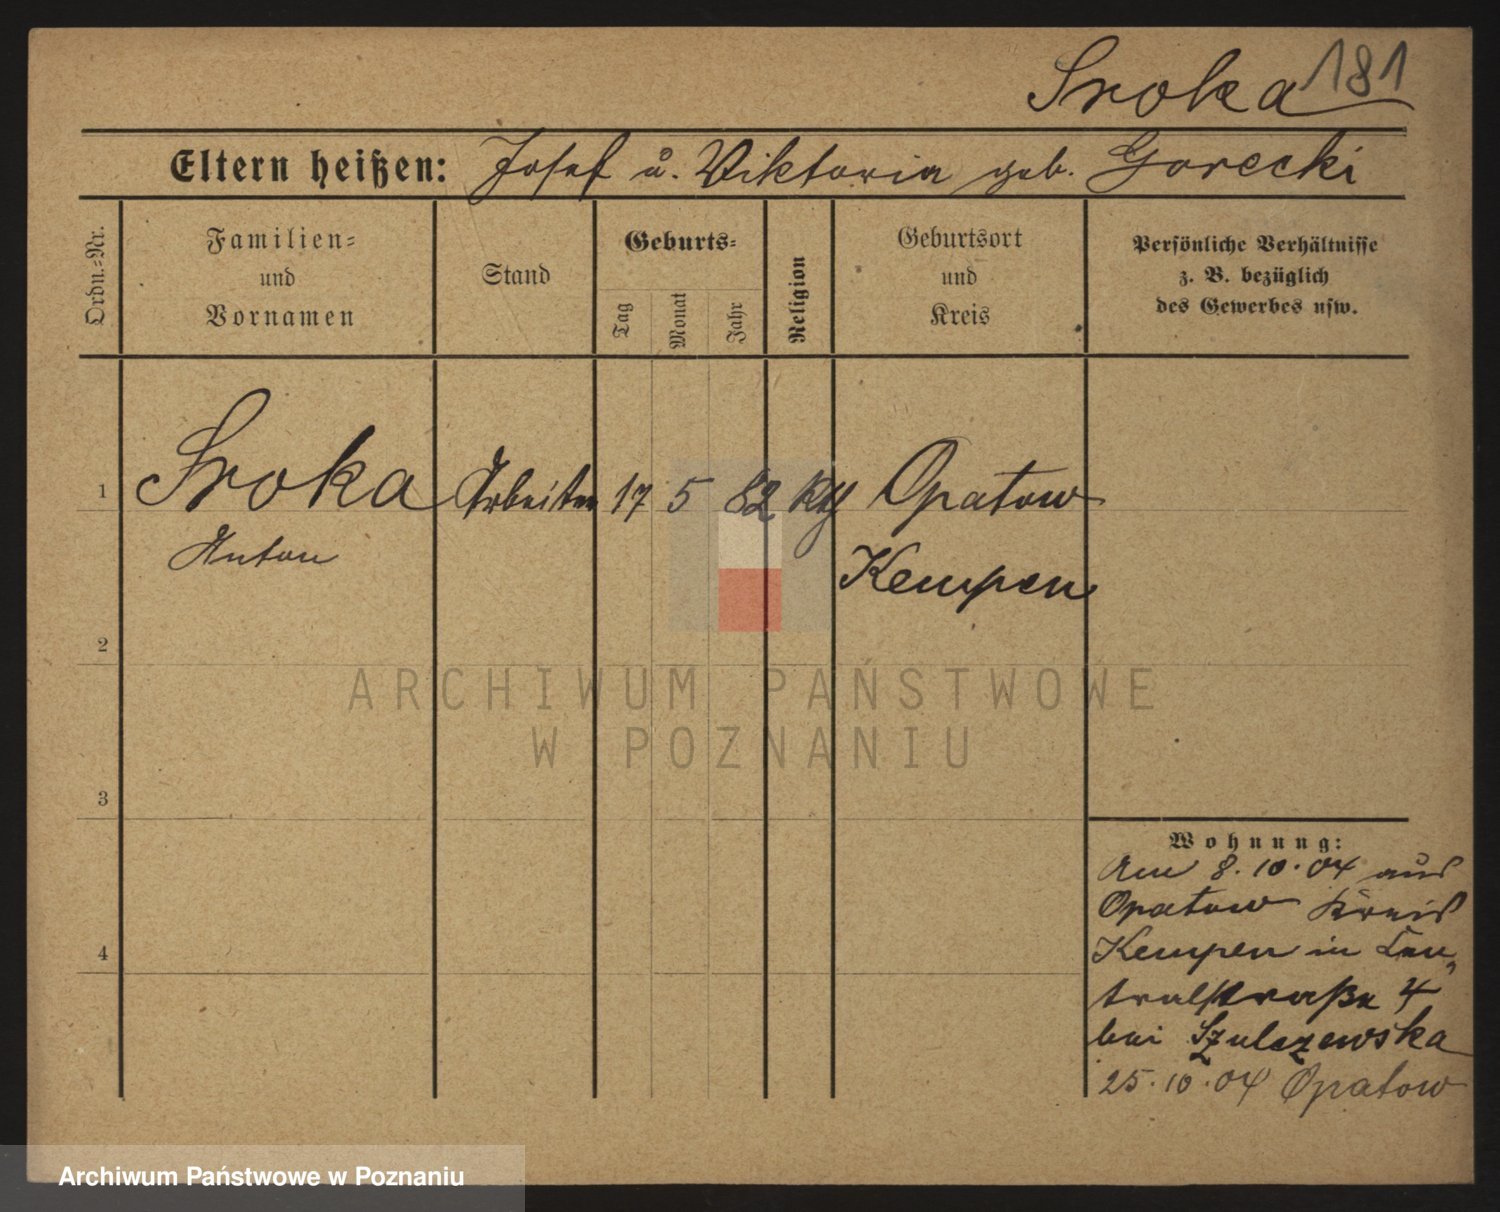 Sroka 181
Eltern heißen: Josef u. Viktoria geb. Gorecki
Ordn.-Nr.
Familien-
und
Vornamen
Stand
Geburts-
Tag
Monat
Jahr
Religion
Geburtsort
und
Kreis
Persönliche Verhältnisse
z. B. bezüglich
des Gewerbes usw.
1 Sroka Arbeiter 17 5 82 kth Opatow
Anton Kempen
2
ARCHIWUM PAŃSTWOWE
W POZNANIU
3
Wohnung:
Am 8.10.04 aus
Opatow Kreis
Kempen in Cen„
tralstraße 4
bei Szulczewska
25.10.04 Opatow
4
Archiwum Państwowe w Poznaniu